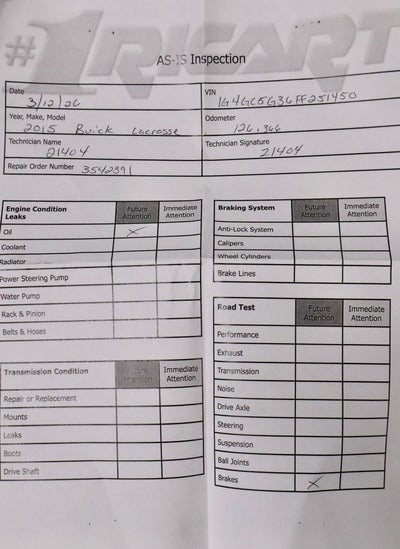 #1 RICART
AS-IS Inspection
Date
3/12/26
VIN
1G4GC5G36FF251450
Year, Make, Model
2015 Buick Lacrosse
Odometer
126,366
Technician Name
21404
Technician Signature
21404
Repair Order Number 3542391
Engine Condition
Leaks
Future Attention
Immediate Attention
Oil X
Coolant
Radiator
Power Steering Pump
Water Pump
Rack & Pinion
Belts & Hoses
Transmission Condition
Future Attention
Immediate Attention
Repair or Replacement
Mounts
Leaks
Boots
Drive Shaft
Braking System
Future Attention
Immediate Attention
Anti-Lock System
Calipers
Wheel Cylinders
Brake Lines
Road Test
Future Attention
Immediate Attention
Performance
Exhaust
Transmission
Noise
Drive Axle
Steering
Suspension
Ball Joints
Brakes X